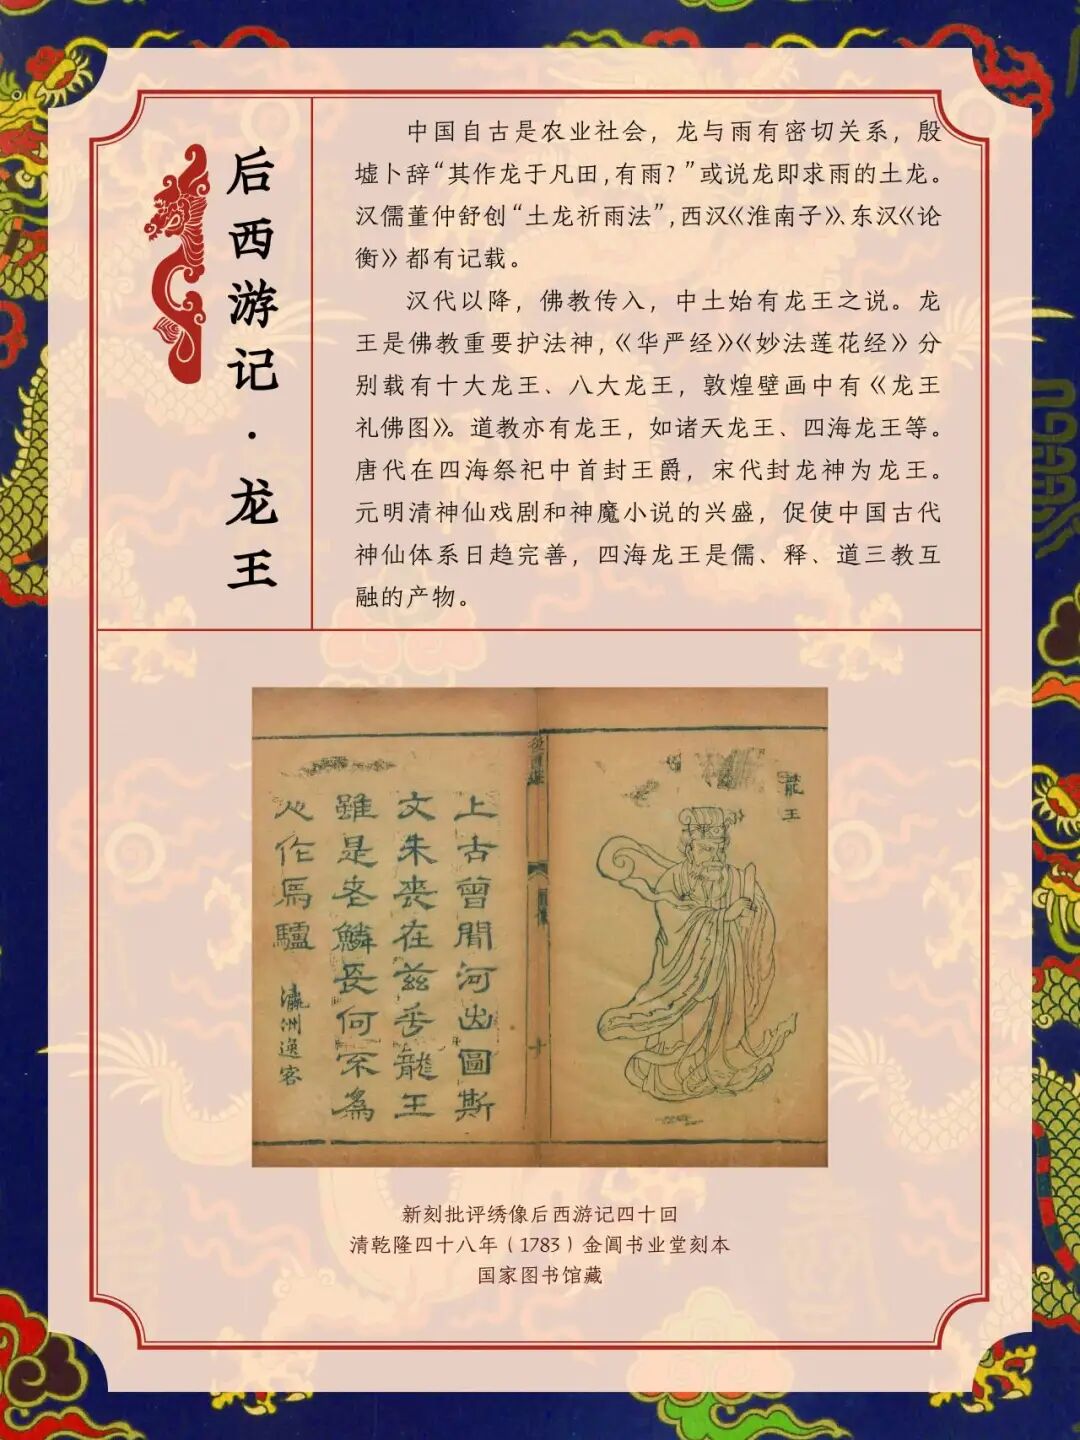 后西游记·龙王
中国自古是农业社会，龙与雨有密切关系，殷
墟卜辞“其作龙于凡田，有雨？”或说龙即求雨的土龙。
汉儒董仲舒创“土龙祈雨法”，西汉《淮南子》、东汉《论
衡》都有记载。
汉代以降，佛教传入，中土始有龙王之说。龙
王是佛教重要护法神，《华严经》《妙法莲花经》分
别载有十大龙王、八大龙王，敦煌壁画中有《龙王
礼佛图》。道教亦有龙王，如诸天龙王、四海龙王等。
唐代在四海祭祀中首封王爵，宋代封龙神为龙王。
元明清神仙戏剧和神魔小说的兴盛，促使中国古代
神仙体系日趋完善，四海龙王是儒、释、道三教互
融的产物。
龍王
十
上古曾聞河出圖斯
文未喪在茲乎龍王
雖是老鱗長何不為
心作馬驢
瀛洲逸客
新刻批评绣像后西游记四十回
清乾隆四十八年（1783）金阊书业堂刻本
国家图书馆藏